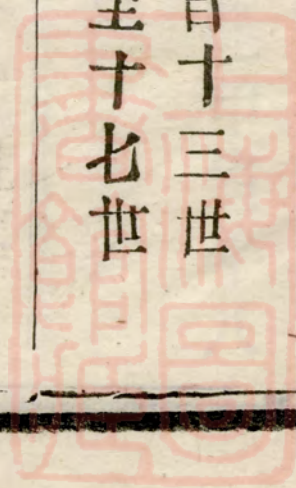 自十三世
至十七世